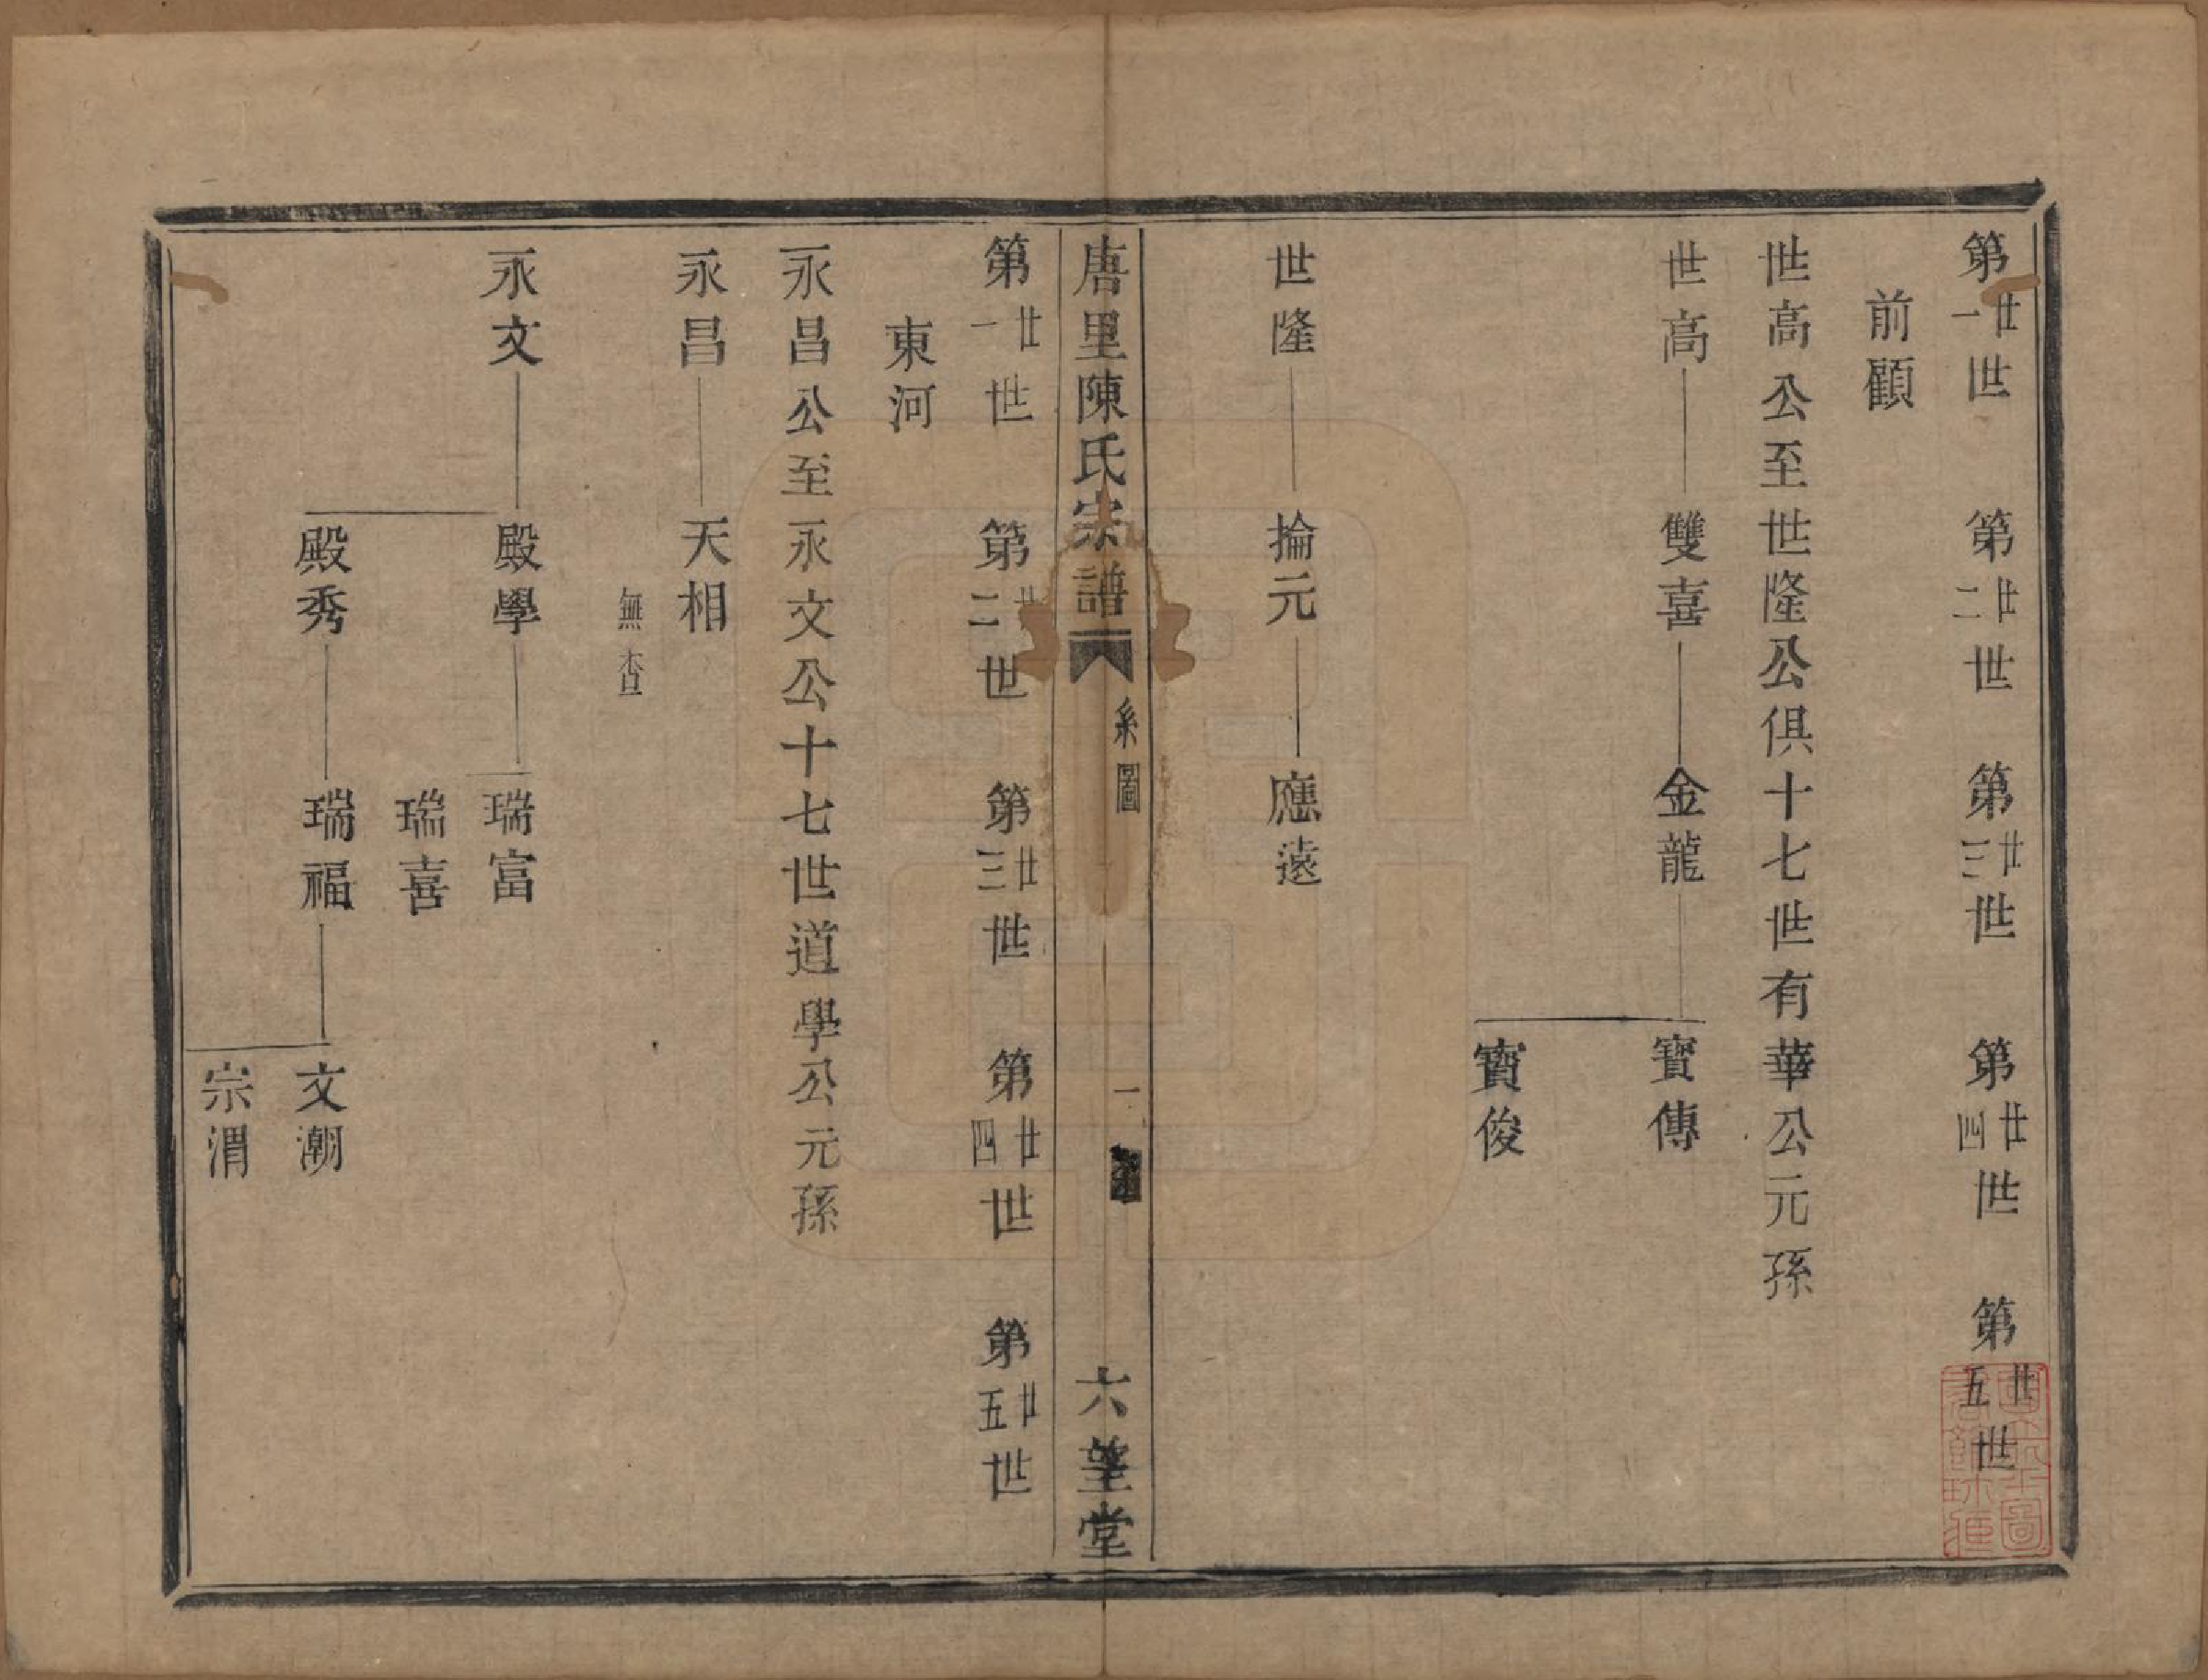 第廿一世　第廿二世　第廿三世　第廿四世　第廿五世
前顧
世高公至世隆公俱十七世有華公元孫
世高　雙喜　金龍　寶傳
寶俊
世隆　掄元　應遠
唐里陳氏宗譜　系圖　一　六望堂
第廿一世　第廿二世　第廿三世　第廿四世　第廿五世
東河
永昌公至永文公十七世道學公元孫
永昌　天相
無查
永文　殿學　瑞富
瑞喜
殿秀　瑞福　文潮
宗渭